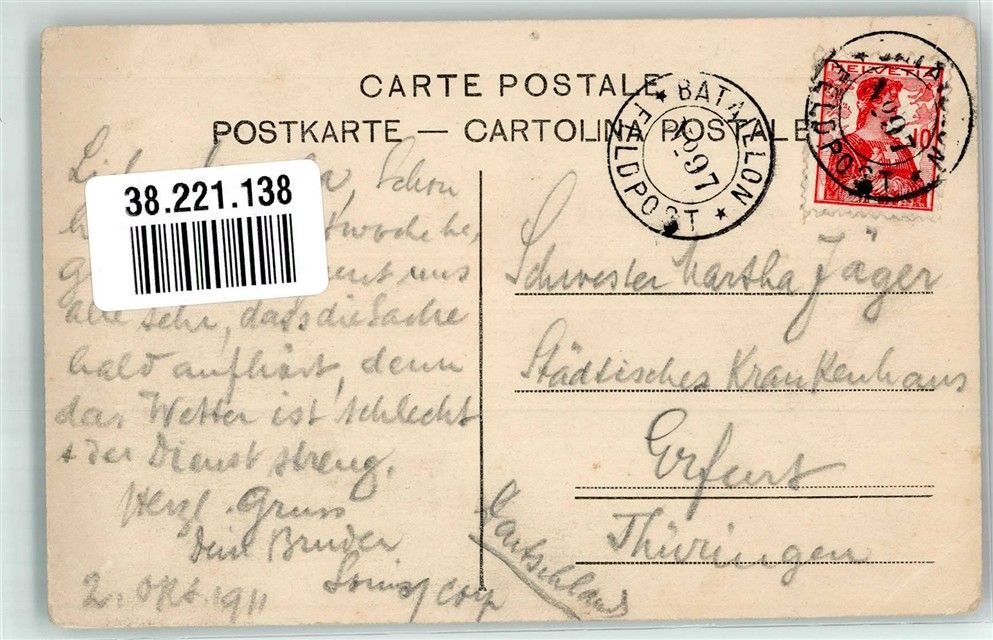 CARTE POSTALE
POSTKARTE — CARTOLINA POSTALE
★ BATAILLON ★ FELDPOST
97
HELVETIA
10
FELDPOST
97
38.221.138
Schon
uns
alle sehr, dass die Sache
bald aufhört, denn
das Wetter ist schlecht
+ der Dienst streng.
Herzl. Gruss
Dein Bruder
Louis, corp
2. Okt. 1911
Schwester Martha Jäger
Städtisches Krankenhaus
Erfurt
Thüringen
Deutschland